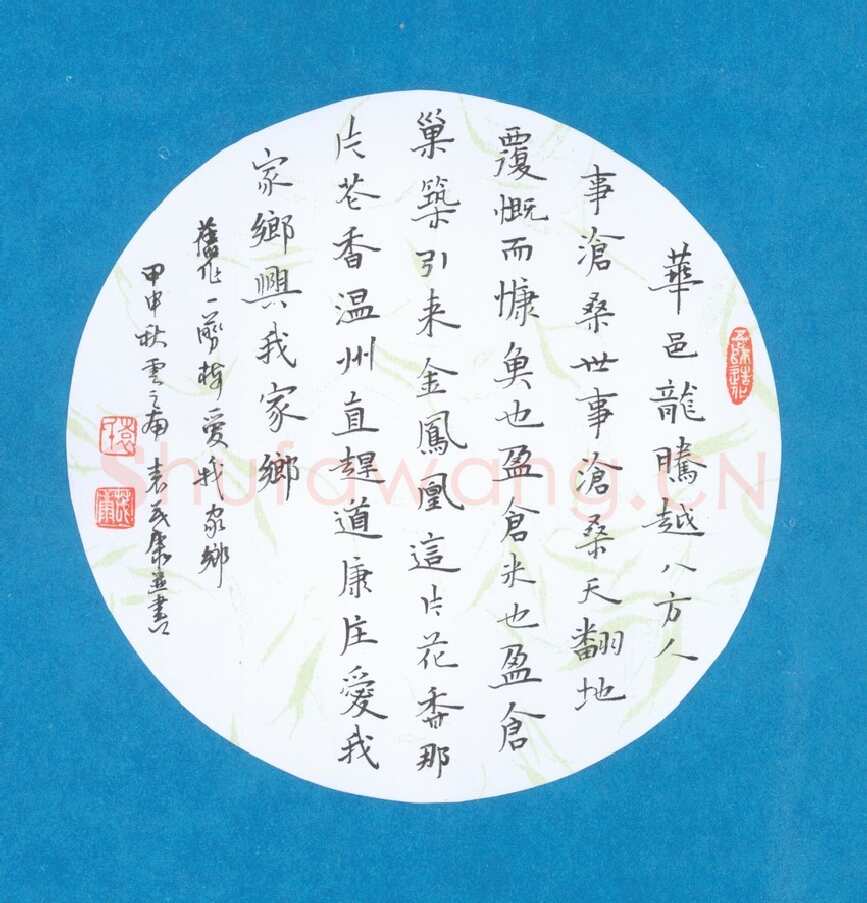 華邑龍騰越八方人
事滄桑世事滄桑天翻地
覆慨而慷魚也盈倉米也盈倉
巢築引来金鳳凰這片花香那
片花香温州直趕道康庄愛我
家鄉興我家鄉
舊作一剪梅愛我家鄉
甲申秋雲之南袁茂康並書
Shufawang.CN